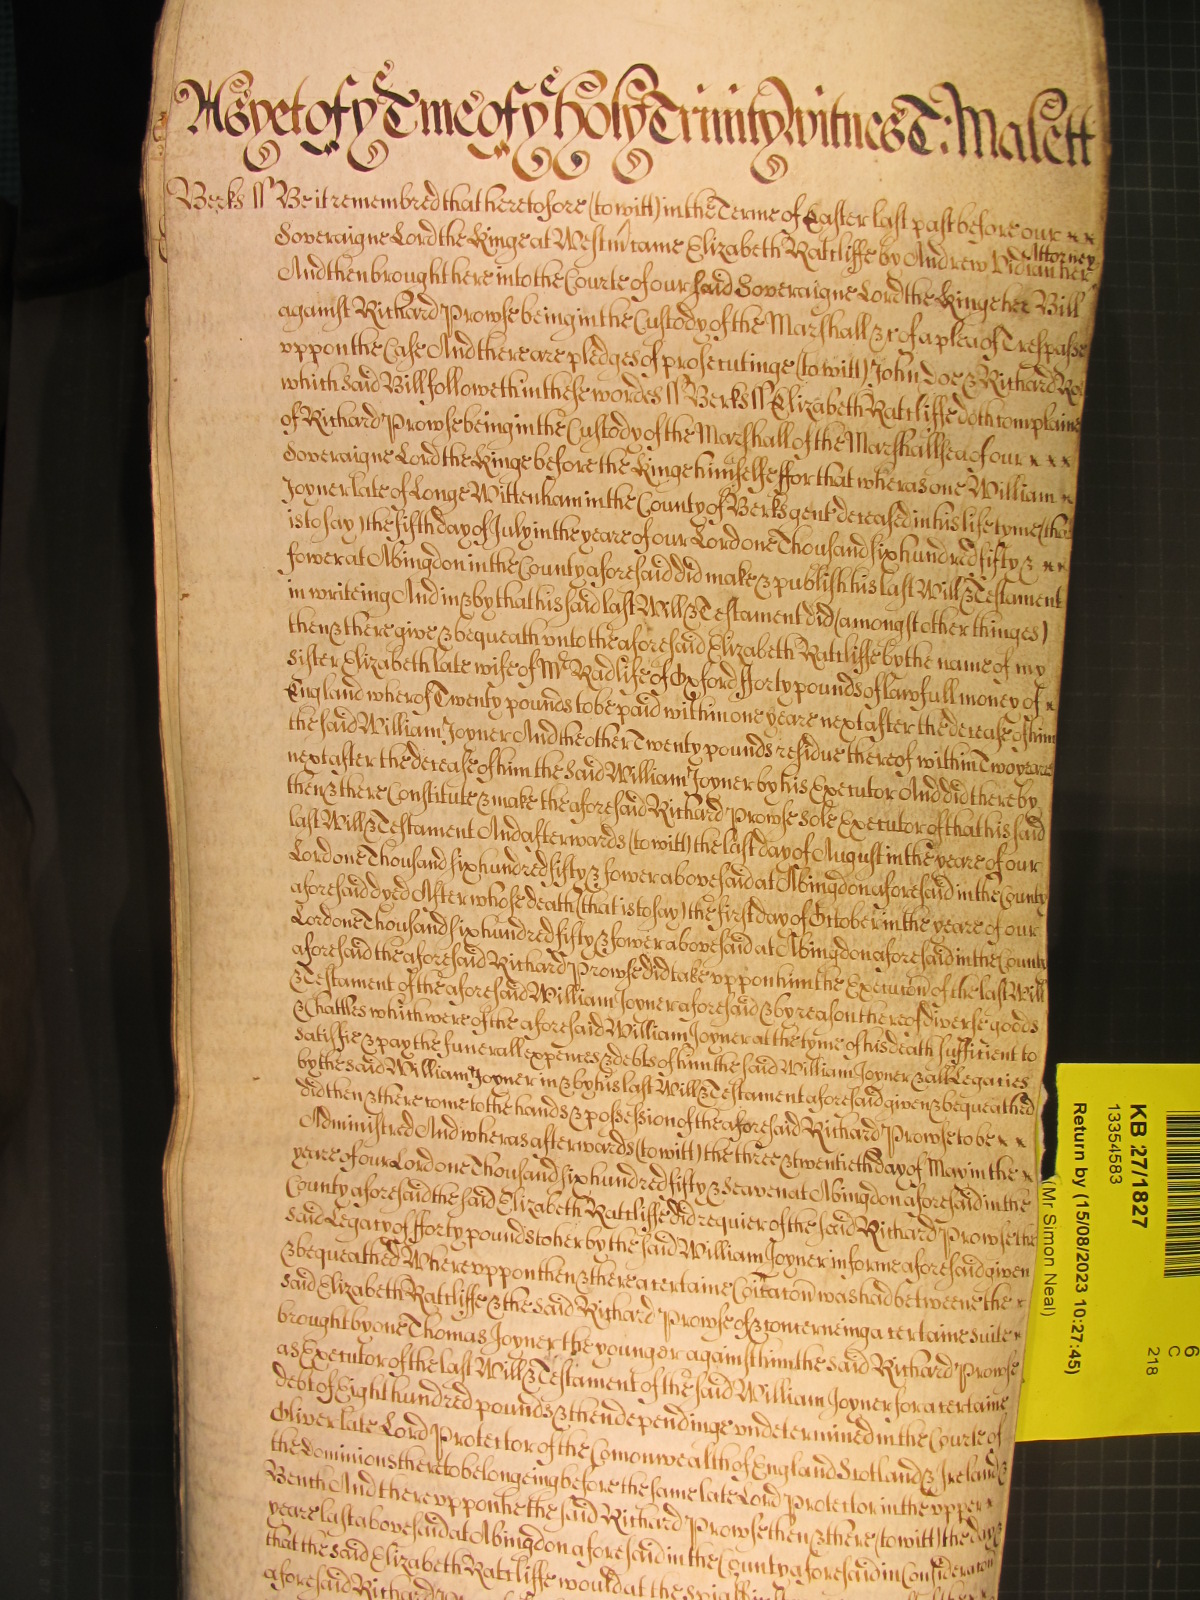 As yet of ye Tme of ye holy Trinity witnes T: Malett
Berks ss Be it remembred that heretofore (to witt) in the Terme of Easter last past before our
Soveraigne Lord the Kinge at Westm̃ came Elizabeth Ratcliffe by Andrew Vidian her Attorney
And then brought here into the Courte of our said Soveraigne Lord the Kinge her Bill
against Richard Prowse being in the Custody of the Marshall &c of a plea of Trespasse
vppon the Case And there are pledges of prosecutinge (to witt) John Doe & Richard Roe
which said Bill followeth in these wordes ss Berks ss Elizabeth Ratcliffe doth complaine
of Richard Prowse being in the Custody of the Marshall of the Marshallsea of our
Soveraigne Lord the Kinge before the Kinge himselfe ffor that wheras one William
Joyner late of Longe Wittenham in the County of Berks gent deceased in his life tyme (that
is to say) the fifth day of July in the yeare of our Lord one Thousand six hundred fifty &
fower at Abingdon in the County aforesaid did make & publish his last Will & Testament
in writeing And in & by that his said last Will & Testament did (amongst other thinges)
then & there give & bequeath vnto the aforesaid Elizabeth Ratcliffe by the name of my
sister Elizabeth late wife of Mr Radlife of Oxford fforty pounds of lawfull money of
England wherof Twenty pounds to be paid within one yeare next after the decease of him
the said William Joyner And the other Twenty pounds residue thereof within Two yeares
next after the decease of him the said William Joyner by his Executor And did thereby
then & there Constitute & make the aforesaid Richard Prowse sole Executor of that his said
last Will & Testament And afterwards (to witt) the last day of August in the yeare of our
Lord one Thousand six hundred fifty & fower abovesaid at Abingdon aforesaid in the County
aforesaid dyed After whose death (that is to say) the first day of October in the yeare of our
Lord one Thousand six hundred fifty & fower abovesaid at Abingdon aforesaid in the County
aforesaid the aforesaid Richard Prowse did take vppon him the Execucon̄ of the last Will
& Testament of the aforesaid William Joyner aforesaid & by reason thereof diverse goods
& Chattles which were of the aforesaid William Joyner at the tyme of his death sufficient to
satisfie & pay the funerall expences & debts of him the said William Joyner & all Legacies
by the said William Joyner in & by his last Will & Testament aforesaid given & bequeathed
did then & there come to the hands & possession of the aforesaid Richard Prowse to be
Administred And wheras afterwards (to witt) the three & twentieth day of May in the
yeare of our Lord one Thousand six hundred fifty & Seaven at Abingdon aforesaid in the
County aforesaid the said Elizabeth Ratcliffe did requier of the said Richard Prowse the
said Legacy of fforty pounds to her by the said William Joyner in forme aforesaid given
& bequeathed Where vppon then & there a certaine Co͠icac͠on was had betweene the
said Elizabeth Ratcliffe & the said Richard Prowse of & concerneinge a certaine suite
brought by one Thomas Joyner the younger against him the said Richard Prowse
as Executor of the last Will & Testament of the said William Joyner for a certaine
debt of Eight hundred pounds & then dependinge vndetermined in the Courte of
Oliver late Lord Protector of the Comonwealth of England Scotland & Ireland &
the dominions thereto belongeing before the same late Lord Protector in the vpper
Bench And there vppon he the said Richard Prowse then & there (to witt) the day &
yeare last abovesaid at Abingdon aforesaid in the County aforesaid in Considerac͠on
that the said Elizabeth Ratcliffe would at the
aforesaid Richard
KB 27/1827
13354583
Return by (15/08/2023 10:27:45)
(Mr Simon Neal)
6
C
218